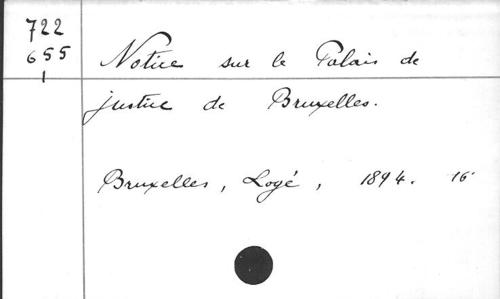 722
655
1
Notice sur le Palais de
justice de Bruxelles.
Bruxelles, Logé, 1894. 16°